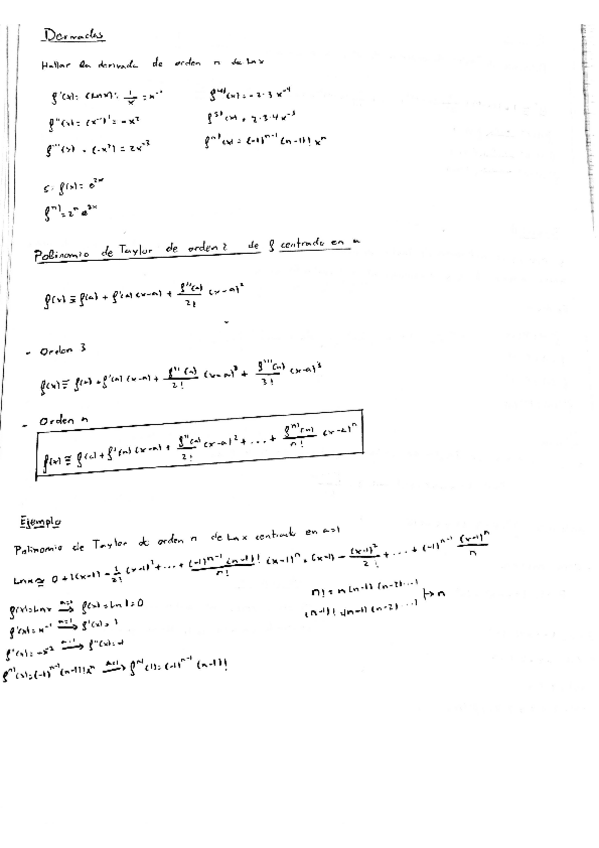 Derivadas
Hallar la derivada de orden n de Ln x
f'(x) = (Ln x)' = 1/x = x⁻¹
f''(x) = (x⁻¹)' = -x²
f'''(x) = (-x²) = 2x⁻³
f⁴⁾(x) = -2·3 x⁻⁴
f⁵⁾(x) = 2·3·4 x⁻⁵
fⁿ⁾(x) = (-1)ⁿ⁻¹ (n-1)! xⁿ
f(x) = e²ˣ
fⁿ⁾ = 2ⁿ e²ˣ
Polinomio de Taylor de orden 2 de f centrado en a
f(x) ≅ f(a) + f'(a) (x-a) + f''(a)/2! (x-a)²
- Orden 3
f(x) ≅ f(a) + f'(a) (x-a) + f''(a)/2! (x-a)² + f'''(a)/3! (x-a)³
- Orden n
f(x) ≅ f(a) + f'(a) (x-a) + f''(a)/2! (x-a)² + ... + fⁿ⁾(a)/n! (x-a)ⁿ
Ejemplo
Polinomio de Taylor de orden n de Ln x centrado en a=1
Ln x ≅ 0 + 1(x-1) - 1/2! (x-1)² + ... + (-1)ⁿ⁻¹ (n-1)!/n! (x-1)ⁿ = (x-1) - (x-1)²/2! + ... + (-1)ⁿ⁻¹ (x-1)ⁿ/n
f(x) = Ln x a=1→ f(x) = Ln 1 = 0
f'(x) = x⁻¹ a=1→ f'(x) = 1
f''(x) = -x² a=1→ f''(x) = -1
fⁿ⁾(x) = (-1)ⁿ⁻¹ (n-1)! xⁿ a=1→ fⁿ⁾(1) = (-1)ⁿ⁻¹ (n-1)!
n! = n (n-1) (n-2) ... 1
(n-1)! = (n-1) (n-2) ... 1
n